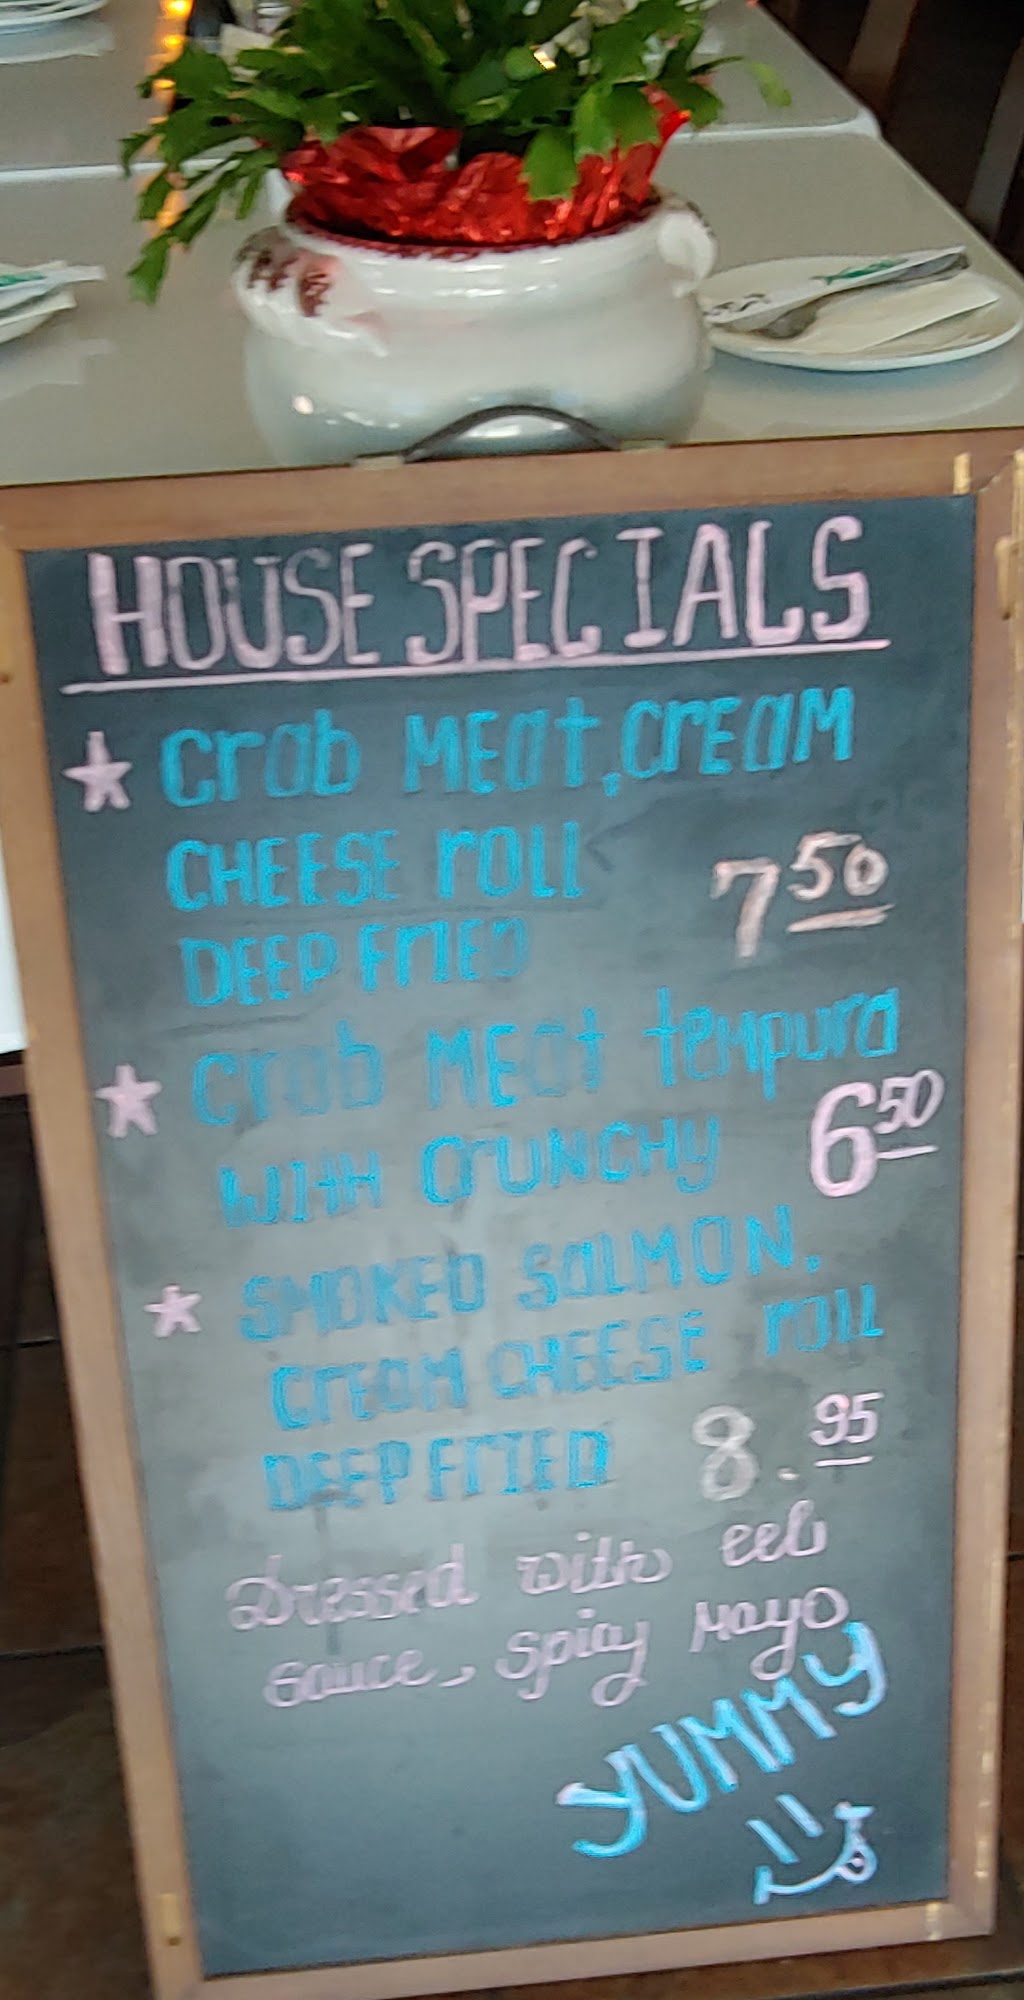 HOUSE SPECIALS
★ Crab MEat, CrEaM
CHEESE roll 7 50
DEEP FrIED
★ Crab MEat tempura
WItH CrUNCHY 6 50
★ SMOKED SalMON,
CrEaM CHEESE roll
DEEP FrIED 8.95
Dressed with eel
sauce, spicy Mayo
YUMMY